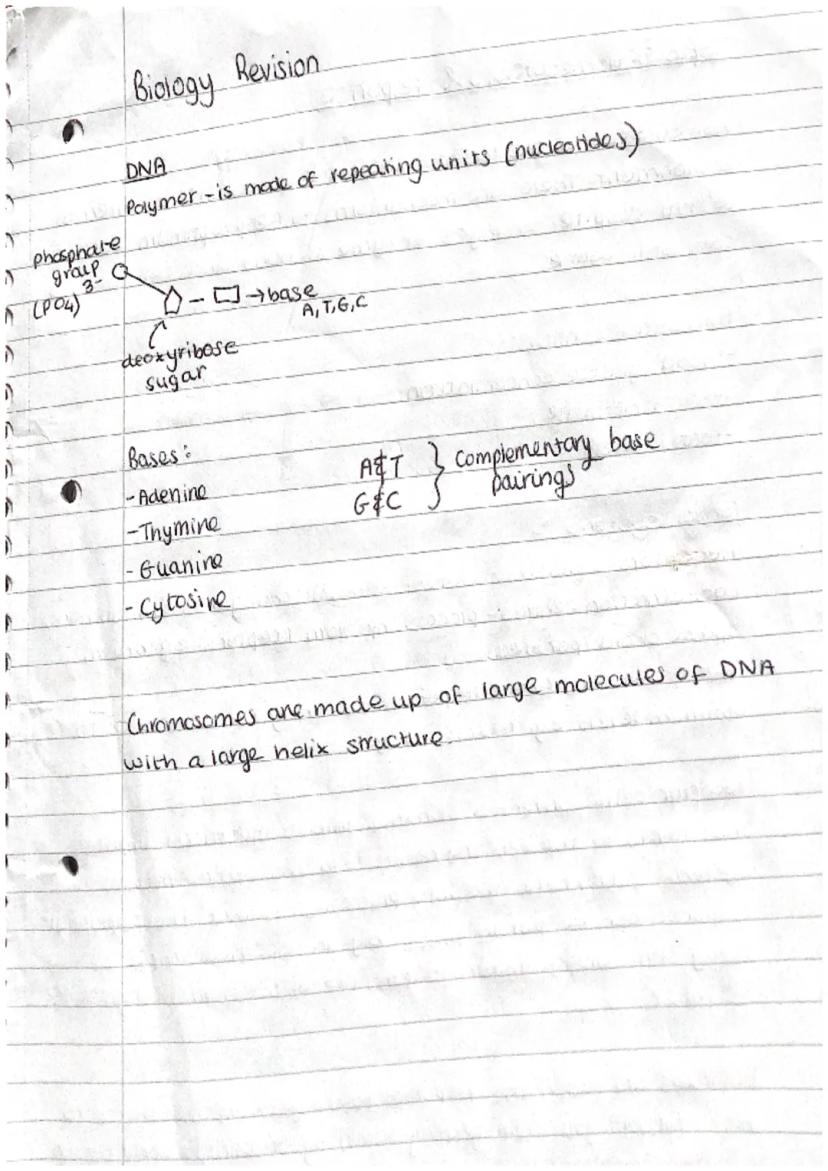 Biology Revision
DNA
Polymer - is made of repeating units (nucleotides)
phosphate
group
(PO4) 3-
→ base
A, T, G, C
deoxyribose
sugar
Bases:
- Adenine
- Thymine
- Guanine
- Cytosine
A & T
G & C
} Complementary base
pairings
Chromosomes are made up of large molecules of DNA
with a large helix structure.